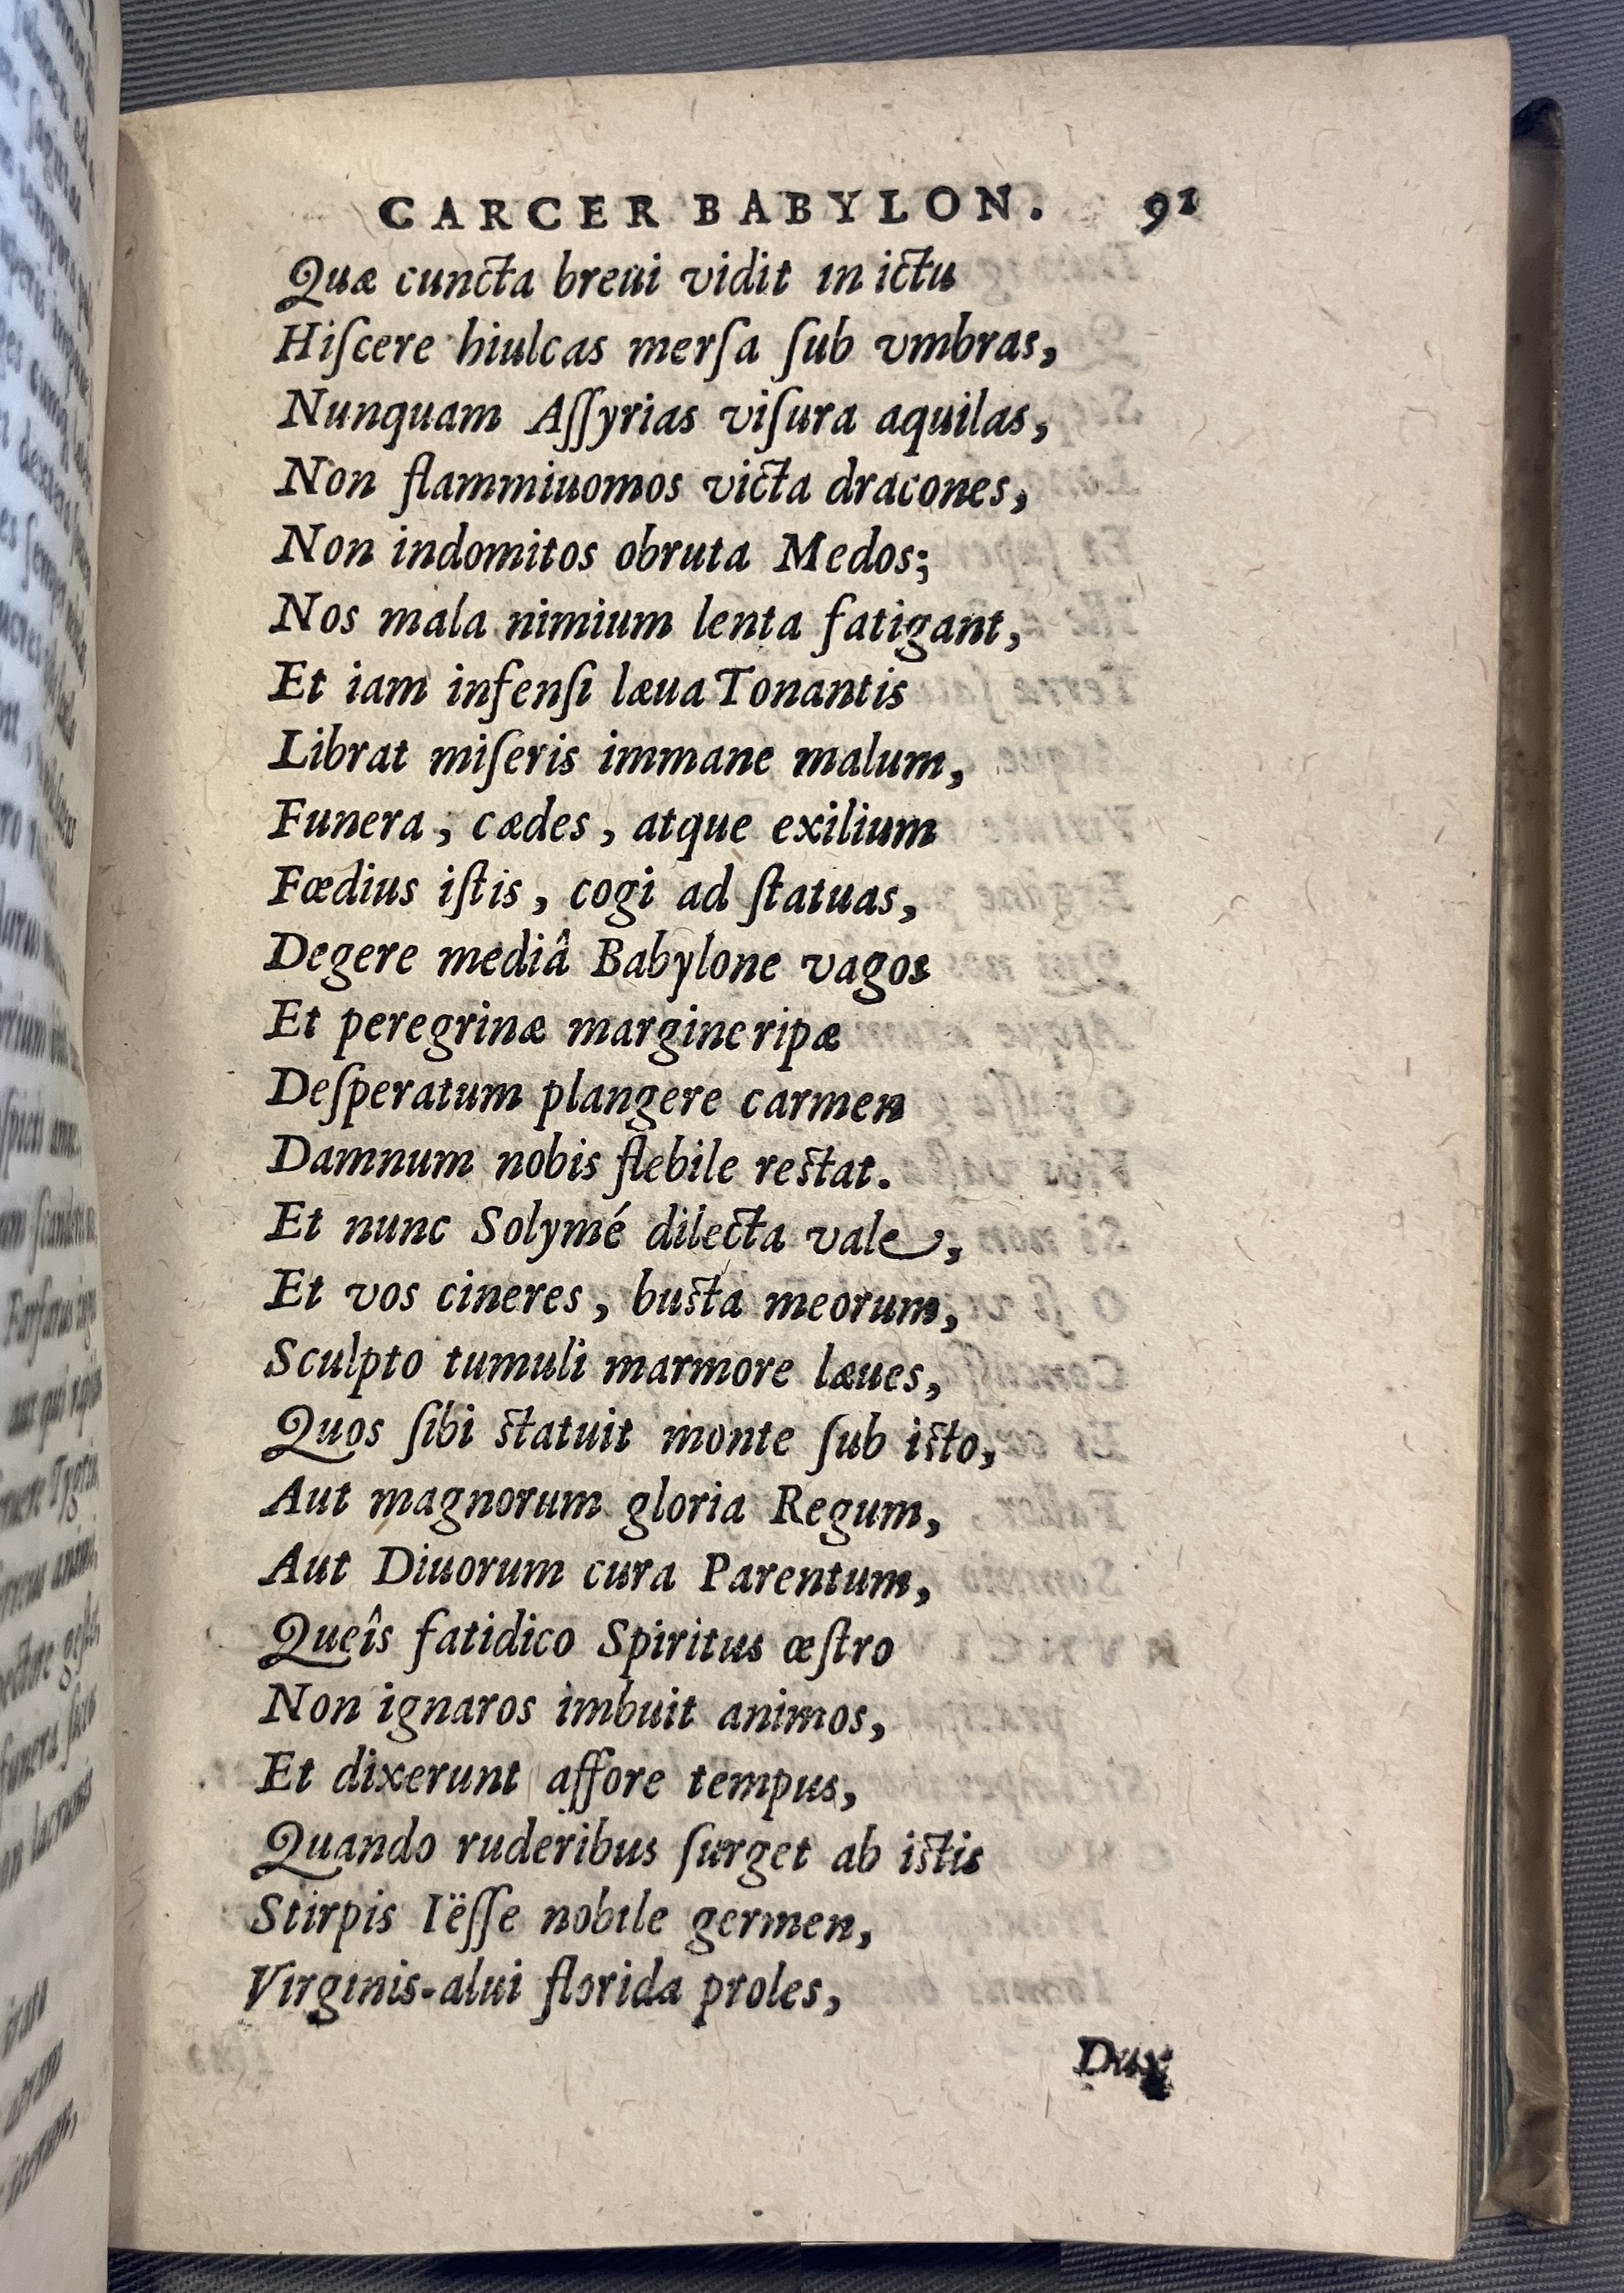 CARCER BABYLON. 91
Quæ cuncta breui vidit in ictu
Hiſcere hiulcas merſa ſub vmbras,
Nunquam Aſſyrias viſura aquilas,
Non flammiuomos victa dracones,
Non indomitos obruta Medos;
Nos mala nimium lenta fatigant,
Et iam infenſi læua Tonantis
Librat miſeris immane malum,
Funera, cædes, atque exilium
Fœdius iſtis, cogi ad ſtatuas,
Degere mediâ Babylone vagos
Et peregrinæ margine ripæ
Deſperatum plangere carmen
Damnum nobis flebile reſtat.
Et nunc Solymé dilecta vale,
Et vos cineres, buſta meorum,
Sculpto tumuli marmore læues,
Quos ſibi ſtatuit monte ſub iſto,
Aut magnorum gloria Regum,
Aut Diuorum cura Parentum,
Queîs fatidico Spiritus œſtro
Non ignaros imbuit animos,
Et dixerunt affore tempus,
Quando ruderibus ſurget ab iſtis
Stirpis Iëſſe nobile germen,
Virginis-alui florida proles,
Dux